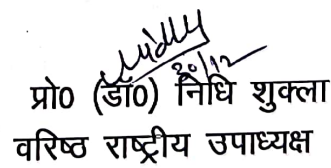 Nidhi
20/12
प्रो0 (डॉ0) निधि शुक्ला
वरिष्ठ राष्ट्रीय उपाध्यक्ष